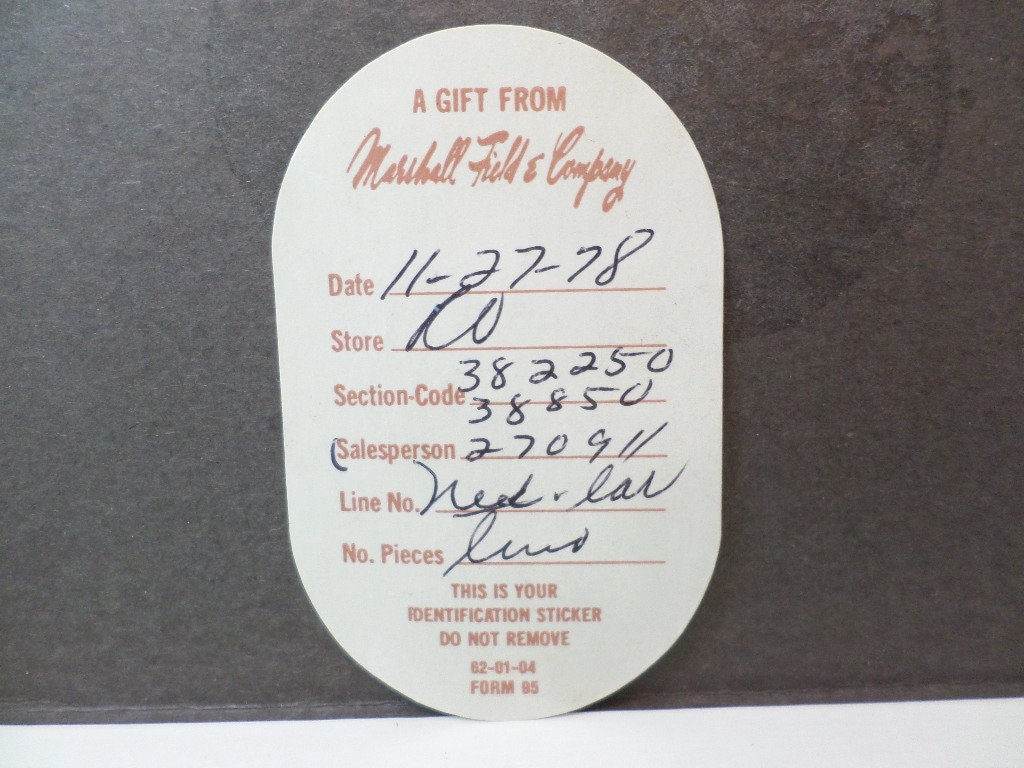 A GIFT FROM
Marshall Field & Company
Date 11-27-78
Store
382250
Section-Code 38850
Salesperson 270911
Line No.
No. Pieces
THIS IS YOUR
IDENTIFICATION STICKER
DO NOT REMOVE
62-01-04
FORM 95